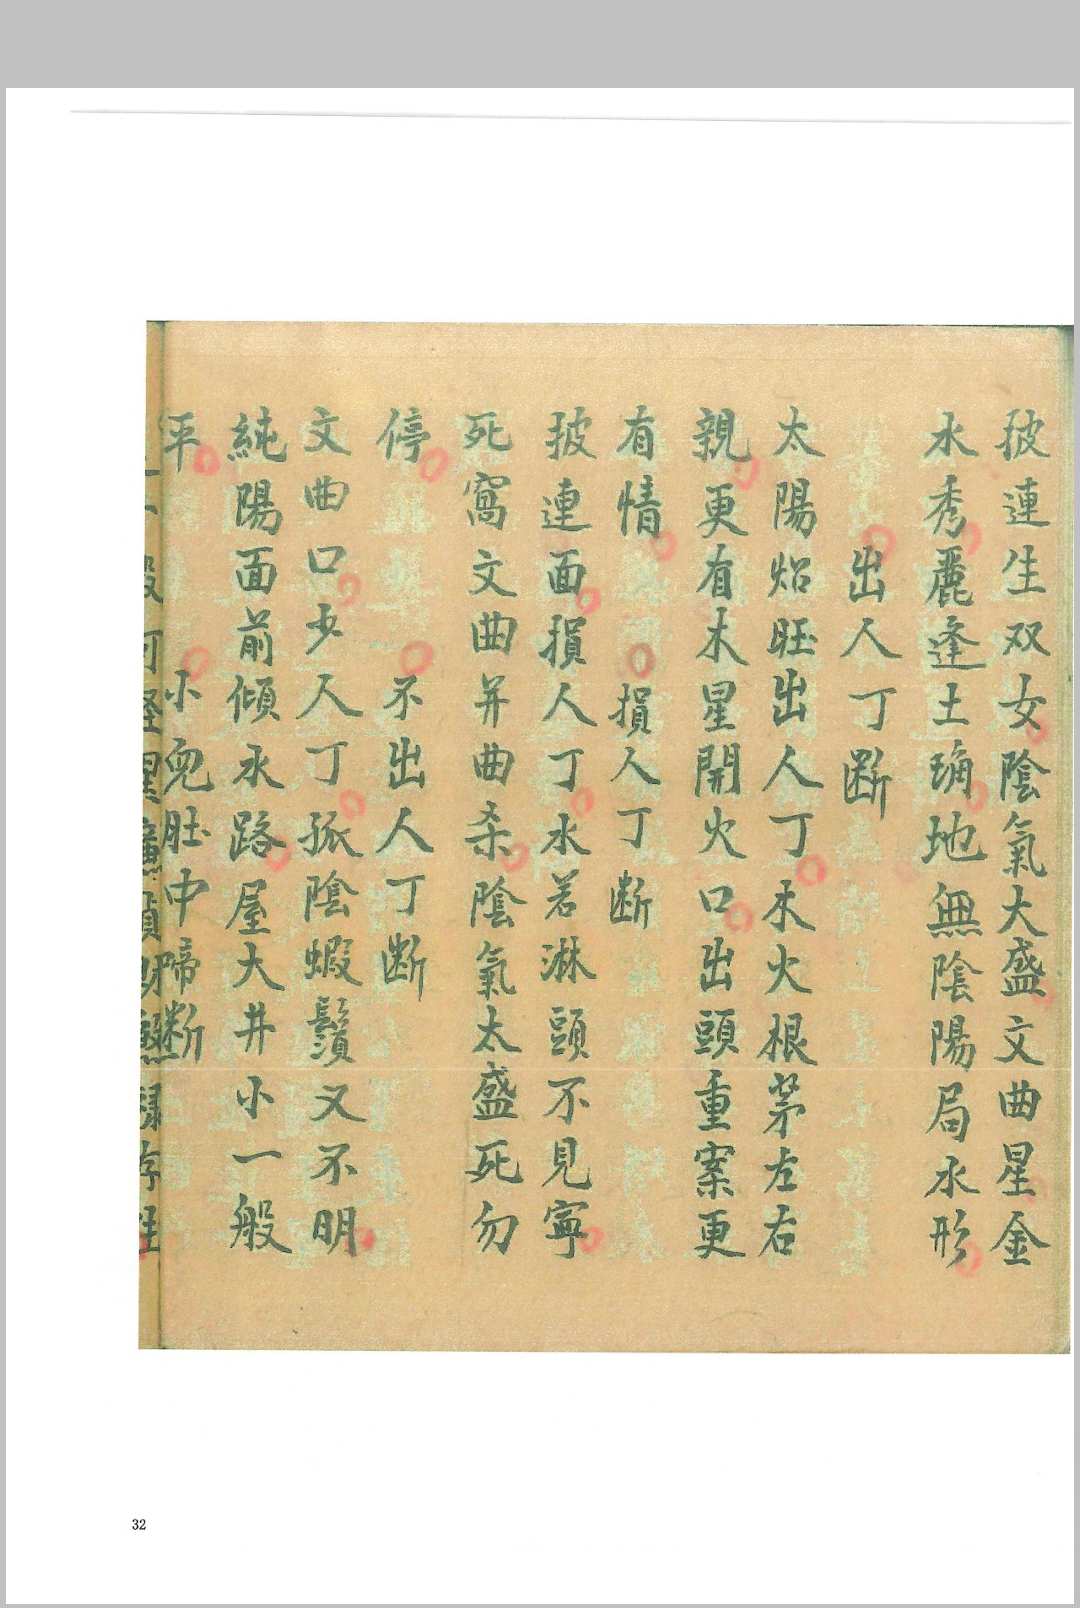 披連生双女陰氣大盛文曲星金
水秀麗逢土瑜地無陰陽局水形
出人丁断
太陽焰旺出人丁木火根茅左右
親更有木星開火口出頭重案更
有情
損人丁断
披連面損人丁水若淋頭不見寧
死窩文曲并曲杀陰氣太盛死勿
停
不出人丁断
文曲口少人丁孤陰蝦鬚又不明
純陽面前傾水路屋大井小一般
平
小兒肚中啼断
32